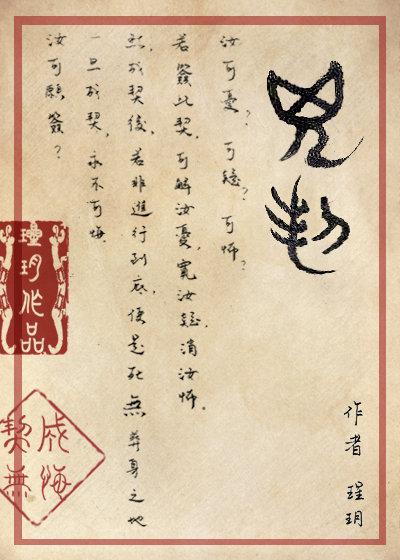 汝可憂？可疑？可怖？
若簽此契，可解汝憂，寬汝疑，消汝怖。
然成契後，若非進行到底，便是死無葬身之地
一旦成契，永不可悔。
汝可願簽？
作者 瑆玥
瑆玥作品
成悔
契無